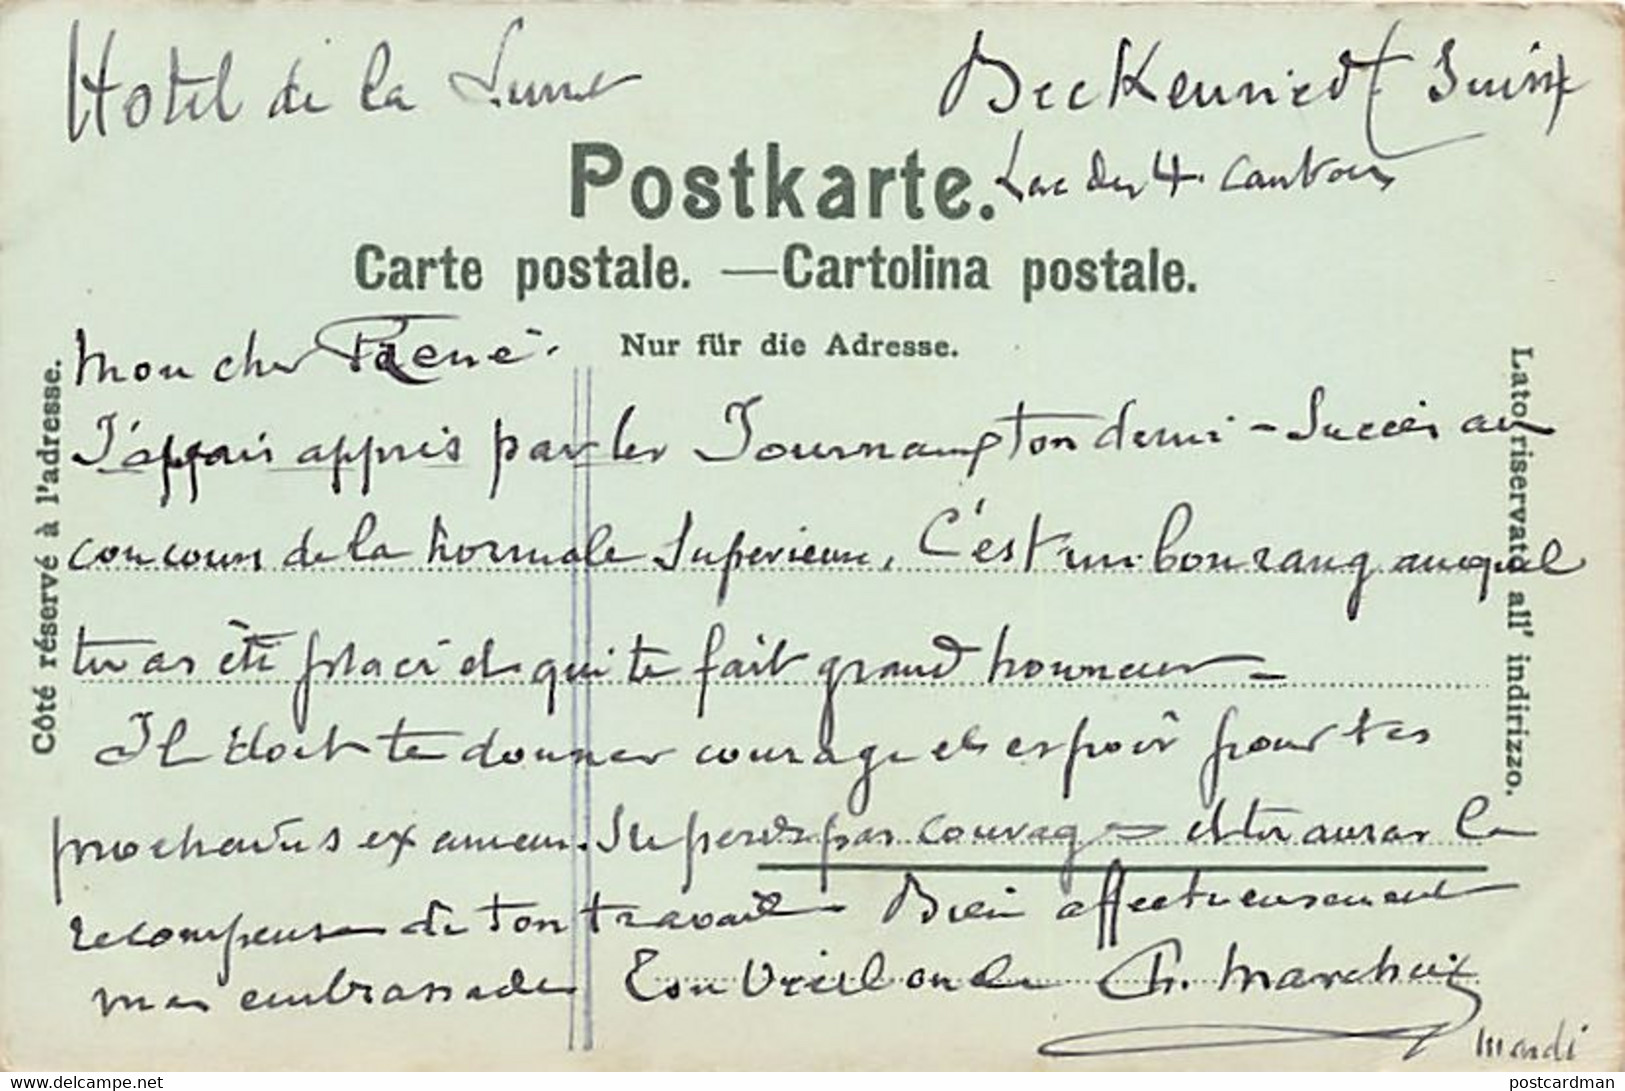 Hotel de la Lune
Beckenried Suisse
Lac des 4 cantons
Postkarte.
Carte postale. — Cartolina postale.
Nur für die Adresse.
Côté réservé à l'adresse.
Lato riservato all' indirizzo.
Mon cher René.
J'avais appris par les Journaux ton demi-succès au
concours de la normale Superieure, C'est un bon rang auquel
tu as été placé et qui te fait grand honneur —
Il doit te donner courage et espoir pour tes
prochains examens. Ne perds pas courage et tu auras la
recompense de ton travail — Bien affectueusement
mes embrassades Ton Vieil oncle Ch. Marchais
Mardi
postcardman